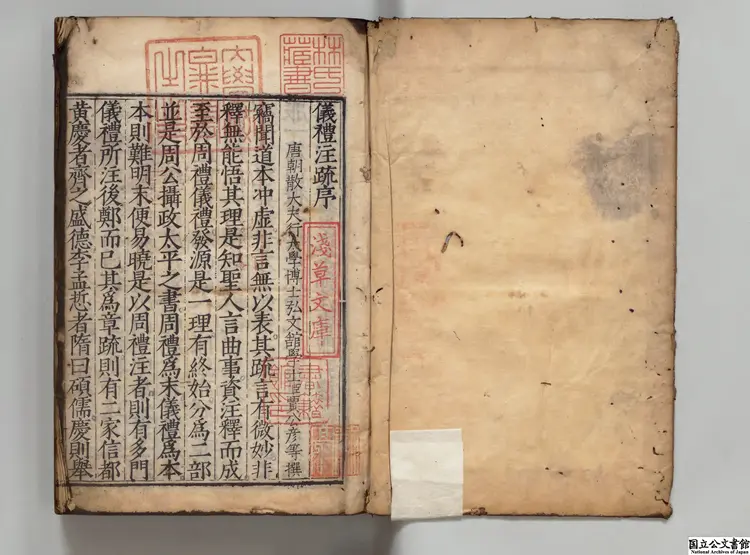 儀禮注疏序
唐朝散大夫行太學博士弘文館學士臣賈公彥等撰
竊聞道本冲虛非言無以表其疏言有微妙非
釋無能悟其理是知聖人言曲事資注釋而成
至於周禮儀禮發源是一理有終始分爲二部
並是周公攝政太平之書周禮爲末儀禮爲本
本則難明末便易曉是以周禮注者則有多門
儀禮所注後鄭而已其爲章疏則有二家信都
黃慶者齊之盛德李孟悊者隋曰碩儒慶則舉
林氏藏書
淺草文庫
国立公文書館
National Archives of Japan